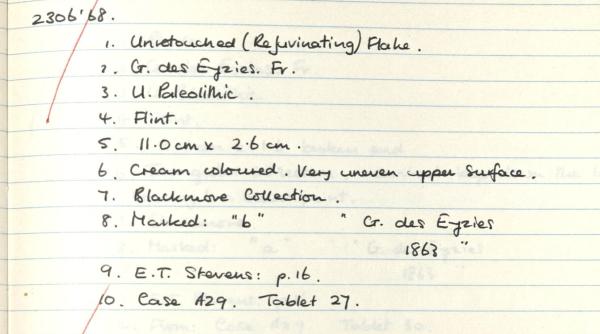 2306'68.
1. Unretouched (Rejuvinating) Flake.
2. G. des Eyzies. Fr.
3. U. Paleolithic.
4. Flint.
5. 11.0 cm x 2.6 cm.
6. Cream coloured. Very uneven upper surface.
7. Blackmore Collection.
8. Marked: "b" " G. des Eyzies
1863 "
9. E.T. Stevens: p.16.
10. Case A29. Tablet 27.